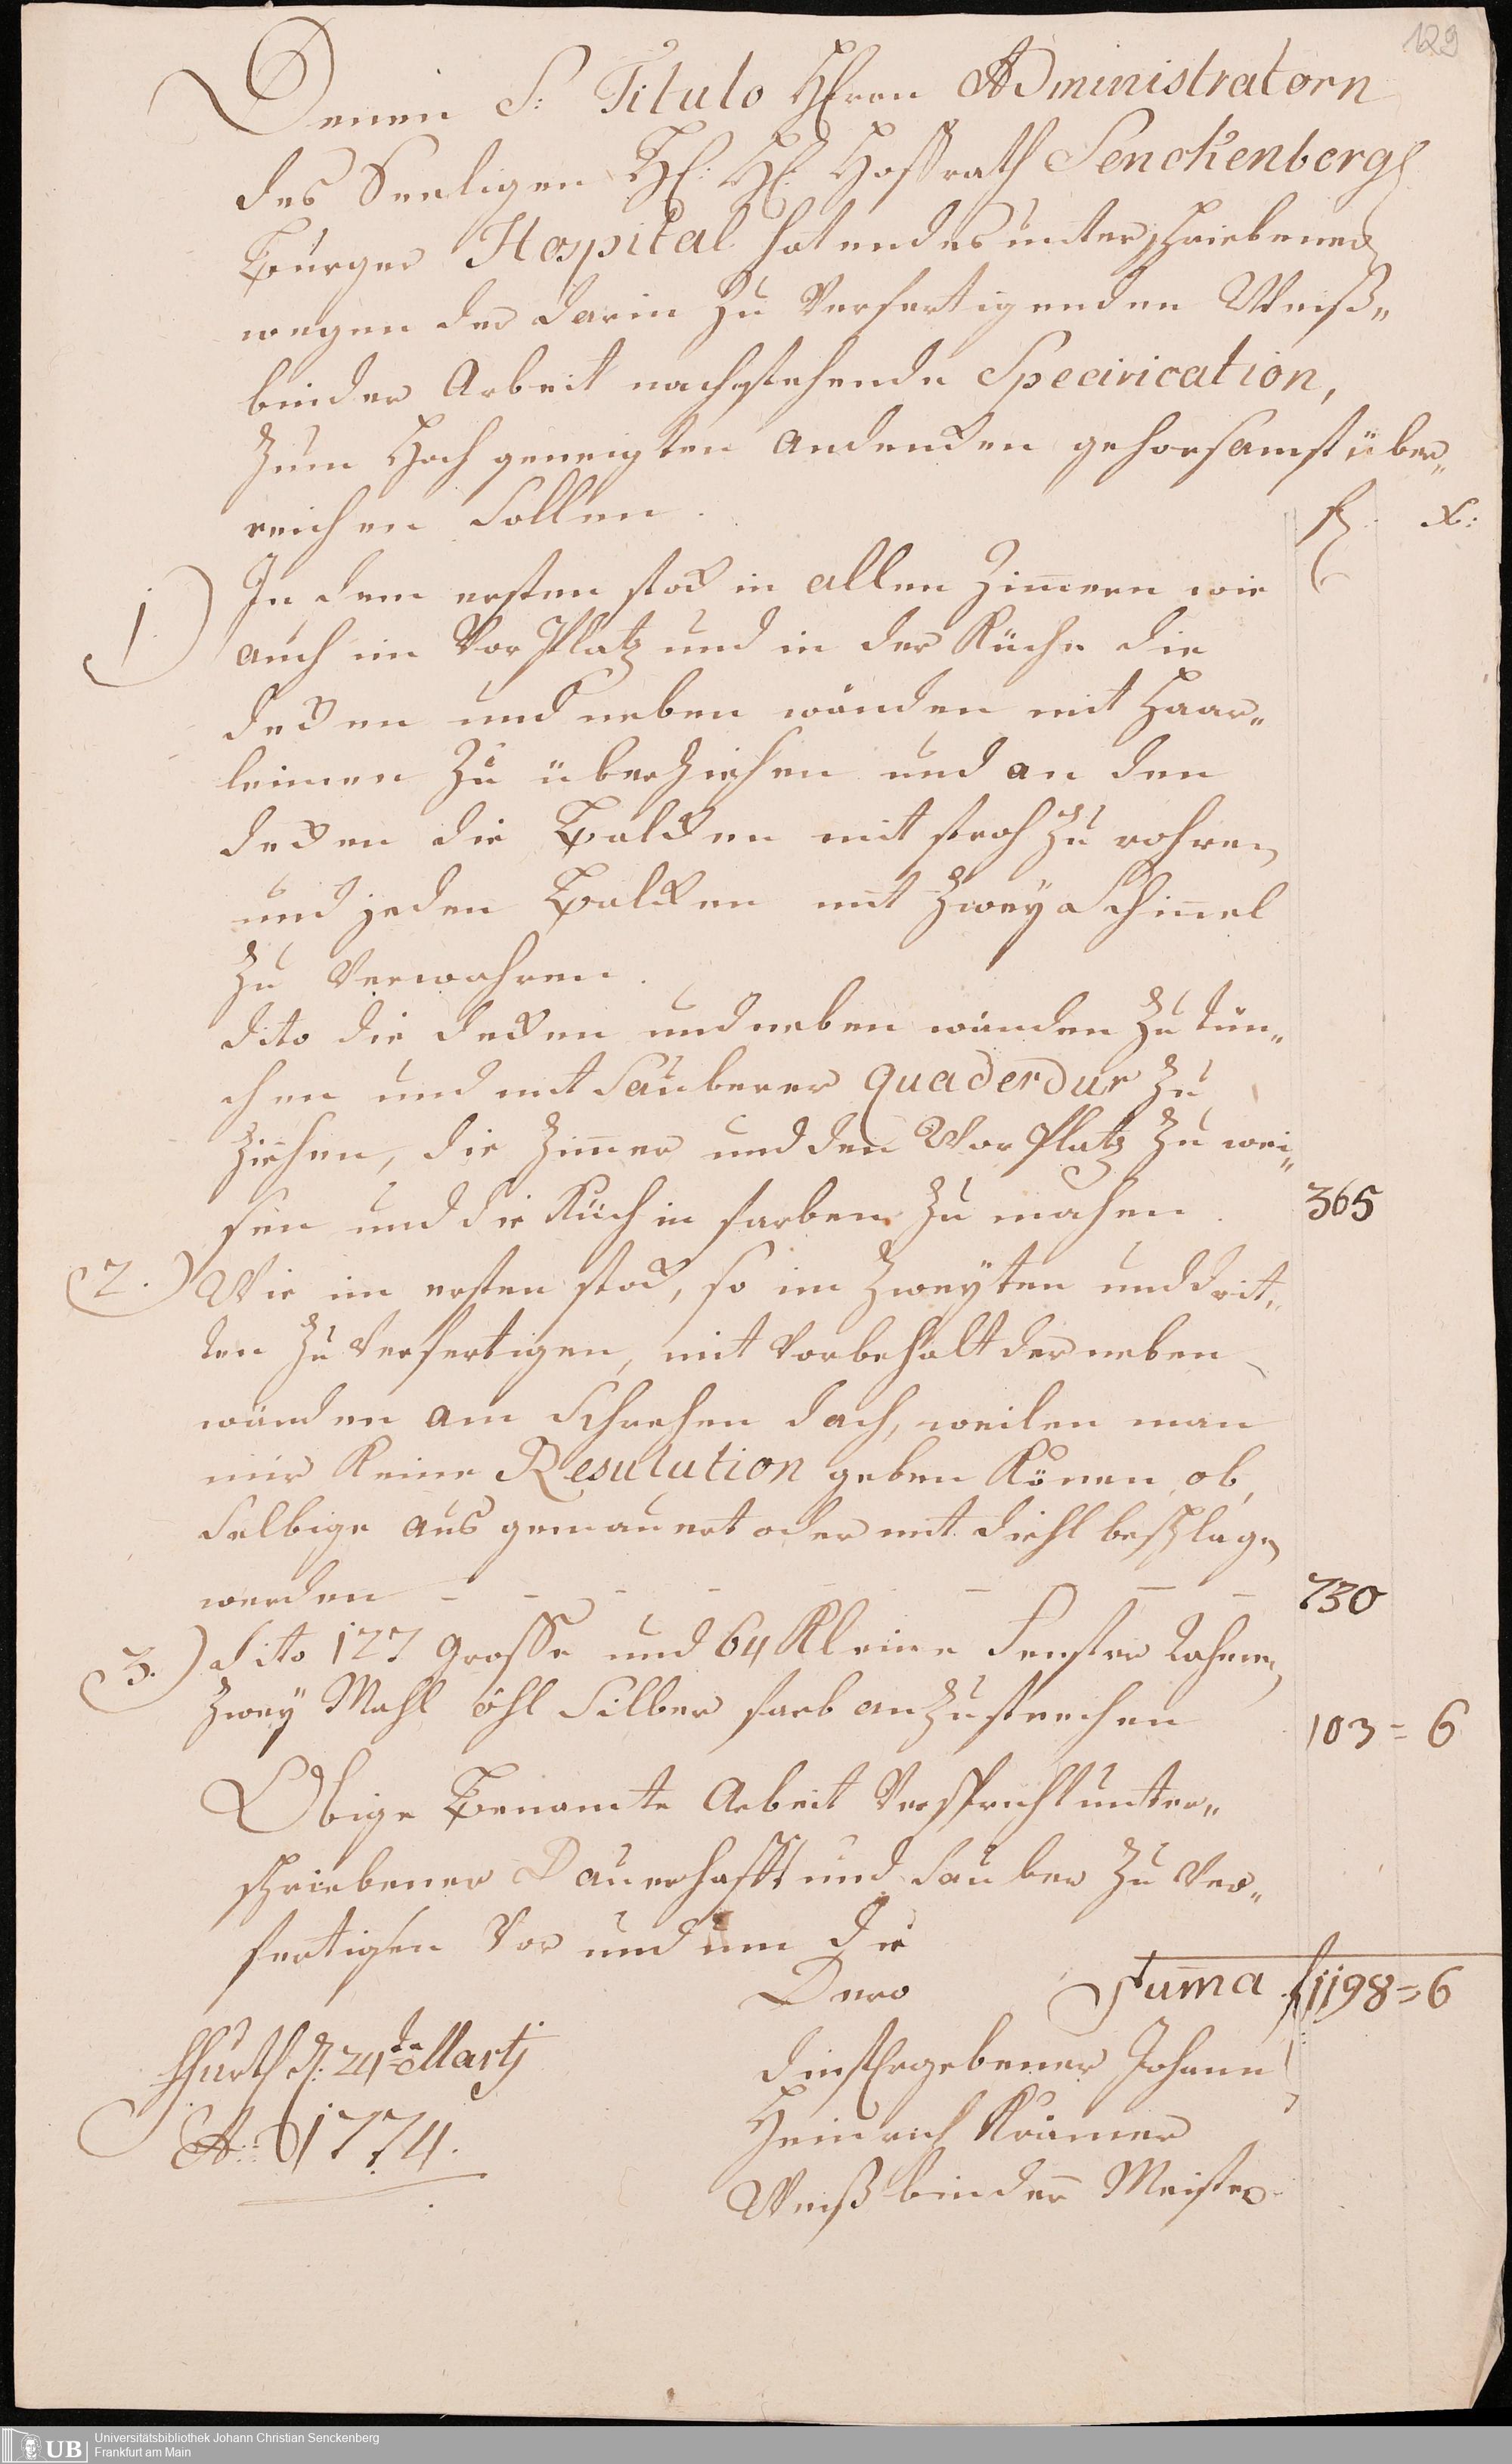 129
Denen S: Titulo Herrn Administratorn
des Seeligen H: H: Hoffrath Senckenbergs
Burger Hospital hat endes unterschriebener
wegen der darin zu Verfertigenden Weiß„
binder Arbeit nachstehende Specivication,
zum Hoch geneigten andencken gehorsamst über„
reichen sollen. f x:
1) In dem ersten stock in allen Zimern wie
auch im Vor Platz und in der Küche die
decken und neben wänden mit Haar„
leimen zu überziehen und an den
decken die Balcken mit stroh zu rohren
und jeden Balcken mit zwey Schinel
zu Verwahren.
dito die decken und neben wänden zu tün„
chen und mit sauberer quaderdur zu
ziehen, die Zimer und den Vor Platz zu wei„
sen und die Küch in farben zu machen. 365
2.) Wie im ersten stock, so im zweyten und drit„
ten zu Verfertigen, mit Vorbehalt der neben
wänden am Schrehen dach, weilen man
mir keine Resulution geben könen, ob,
selbige aus gemauert oder mit diehl beschlagen
werden - - - - - - - - 730
3.) dito 127 grosse und 64 kleine Fenster Rahmen
zwey Mahl öhl Silber farb anzustreichen 103 = 6
Obige Benamte Arbeit Verspricht unter„
schriebener Dauerhafft und sauber zu Ver„
fertigen Vor und um die
Dero Suma f 1198 = 6
ffurth d: 24ten Martj
dinstErgebener Johann
A: 1774.
Heinrich Krämer
Weiß binder Meister
UB Universitätsbibliothek Johann Christian Senckenberg
Frankfurt am Main